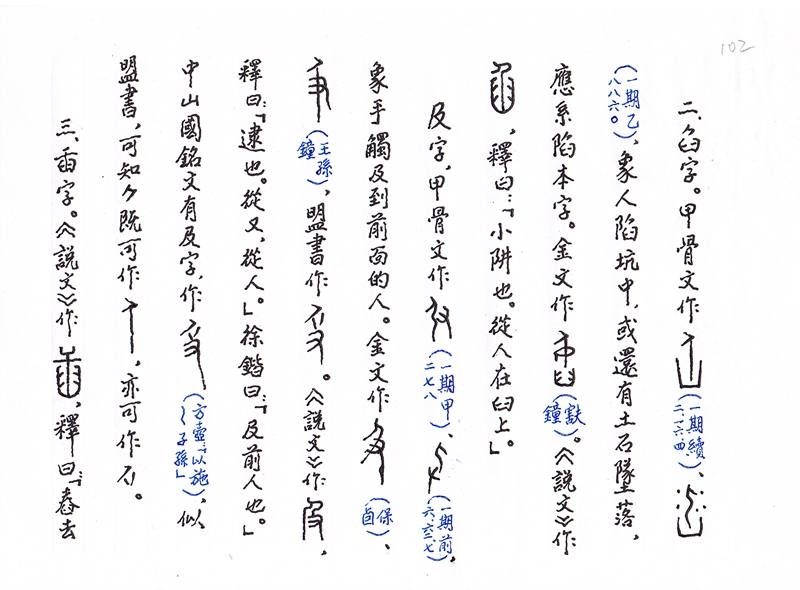 102
二、臽字。甲骨文作（一期續二、一六、四）、
（一期乙八八六〇）、象人陷坑中，或還有土石墜落，
應系陷本字。金文作（㝬鐘）。《說文》作
，釋曰：「小阱也。從人在臼上。」
及字，甲骨文作（一期甲二七八）、（一期前六、六三、七），
象手觸及到前面的人。金文作（保卣）、
（王孫鐘），盟書作。《說文》作，
釋曰：「逮也。從又，從人」。徐鍇曰：「及前人也。」
中山國銘文有及字，作（方壺：「以施及子孫」），似
盟書，可知ク既可作，亦可作。
三、臿字。《說文》作，釋曰：「舂去